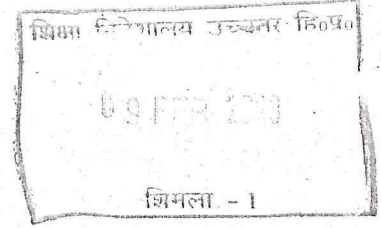 शिक्षा निदेशालय उच्चतर हि०प्र०
शिमला - 1